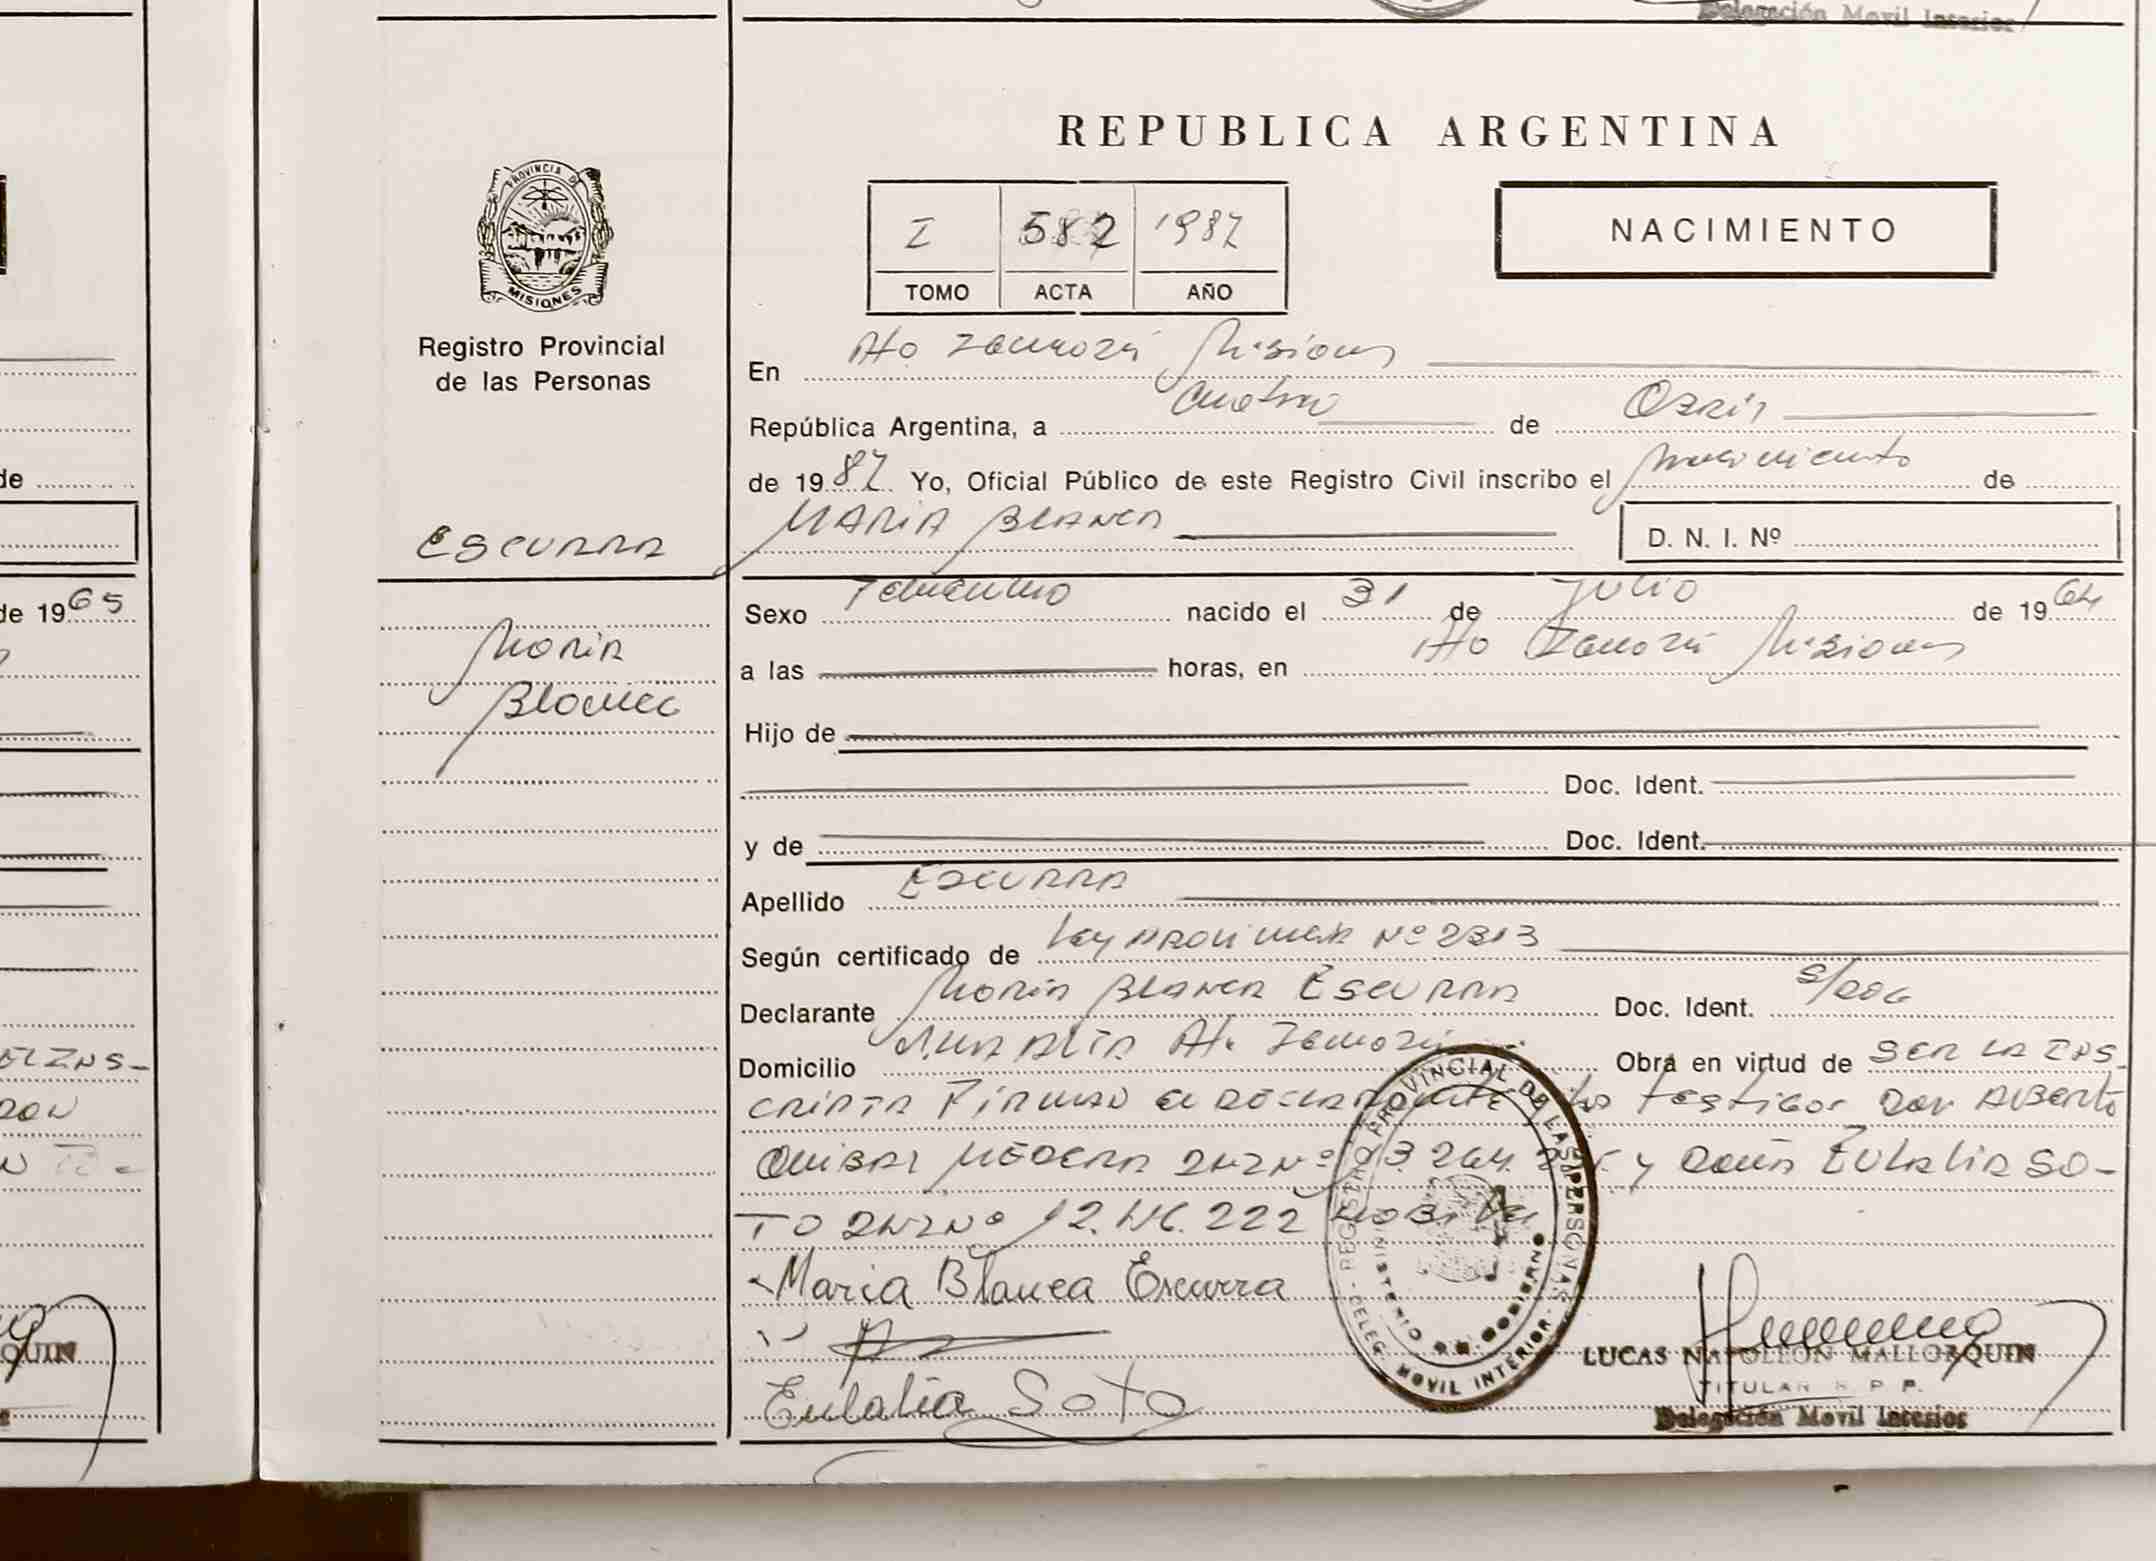 Delegación Movil Interior
REPUBLICA ARGENTINA
PROVINCIA DE
MISIONES
Registro Provincial
de las Personas
I 582 1987
TOMO ACTA AÑO
NACIMIENTO
En Alto Misiones
República Argentina, a cuatro de Abril
de 1987 Yo, Oficial Público de este Registro Civil inscribo el nacimiento de
MARIA BLANCA
D. N. I. Nº
ESCURRA
Maria
Blanca
Sexo Femenino nacido el 31 de Julio de 1964
a las horas, en Alto Misiones
Hijo de
Doc. Ident.
y de Doc. Ident.
Apellido ESCURRA
Según certificado de Ley Nº 2313
Declarante Maria Blanca Escurra Doc. Ident. s/doc
Domicilio Obra en virtud de SER LA INS-
CRIPTA Firman el declarante y los testigos don Alberto
MEDERA DNI Nº y doña Eulalia SO-
TO DNI Nº 222
Maria Blanca Escurra
Eulalia Soto
REGISTRO PROVINCIAL DE LAS PERSONAS
MINISTERIO DE GOBIERNO
DELEG. MOVIL INTERIOR
LUCAS NAPOLEON MALLORQUIN
TITULAR R. P. P.
Delegación Movil Interior
de
de 1965
QUIN